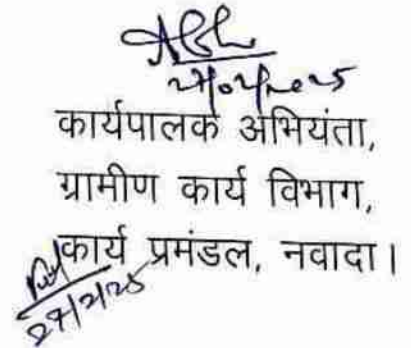 कार्यपालक अभियंता,
ग्रामीण कार्य विभाग,
कार्य प्रमंडल, नवादा।
27/2/25